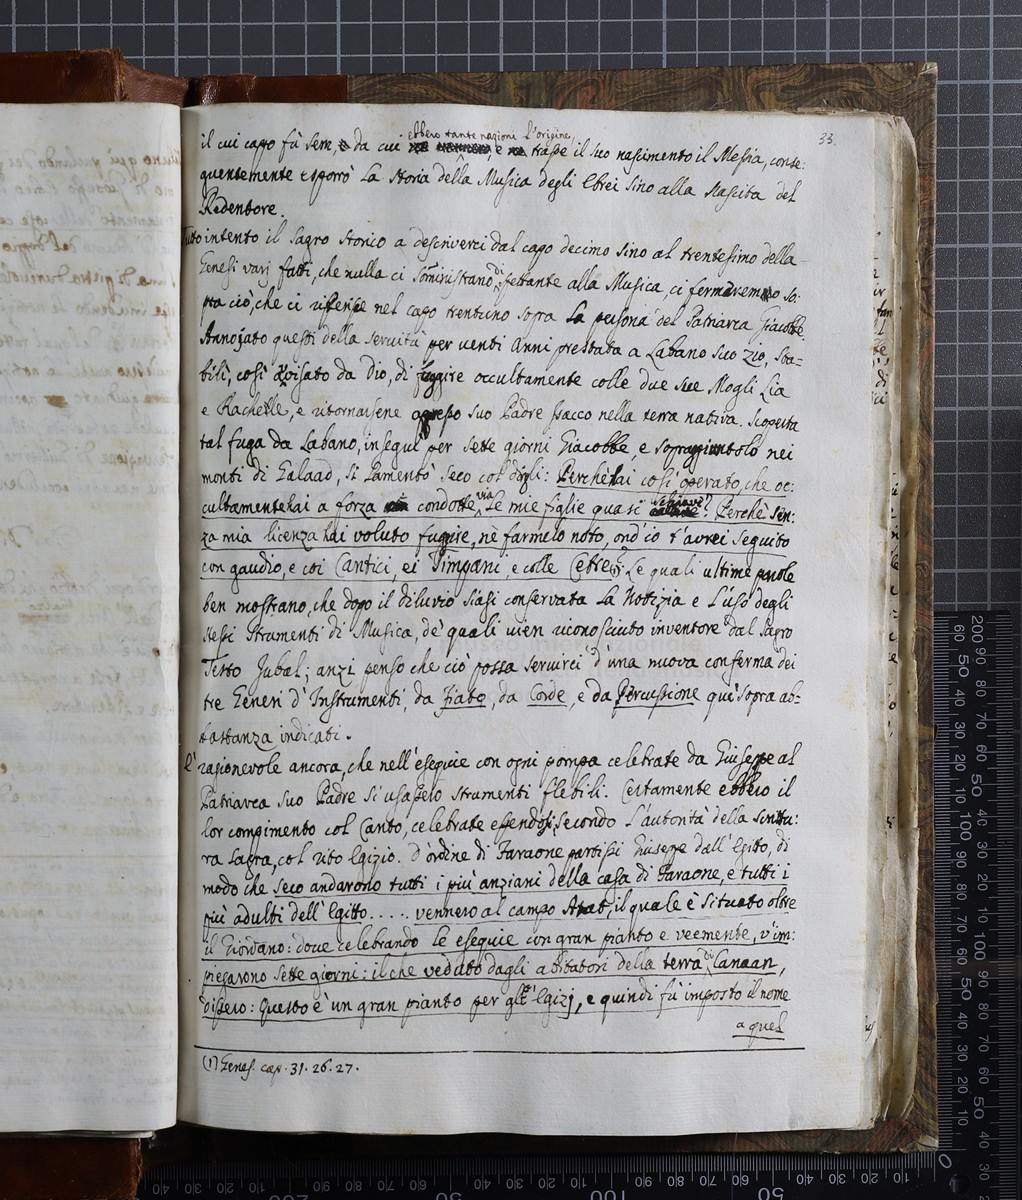 33.
ebbero tante nazioni l'origine,
il cui capo fù Sem, da cui e trasse il suo nascimento il Messia, conse:
guentemente esporrò La Storia della Musica degli Ebrei sino alla Nascita del
Redentore.
Tutto intento il Sagro Storico a descriverci dal capo decimo sino al trentesimo della
Genesi varj fatti, che nulla ci somministrano di spettante alla Musica, ci fermaremo so:
pra ciò, che ci riferisce nel capo trentuno sopra La persona del Patriarca Giacobbe.
Annojato questi della servitù per venti Anni prestata a Labano suo zio, sta=
bilì, così avisato da Dio, di fuggire occultamente colle due sue Mogli Lia
e Rachelle, e ritornarsene appresso suo Padre Isacco nella terra nativa. Scoperta
tal fuga da Labano, inseguì per sette giorni Giacobbe e sopraggiuntolo nei
monti di Galaad, si lamentò seco col dirgli: Perchè hai così operato, che oc:
cultamente hai a forza condotte via Le mie figlie quasi schiave? Perchè sen:
za mia licenza hai voluto fuggire, nè farmelo noto, ond'io t'avrei seguito
con gaudio, e coi Cantici, ei Timpani, e colle Cetre (1). Le quali ultime parole
ben mostrano, che dopo il diluvio siasi conservata La Notizia e L'uso degli
stessi Strumenti di Musica, de' quali vien riconosciuto inventore dal Sagro
Testo Jubal; anzi penso che ciò possa servirci d'una nuova conferma dei
tre Generi d'Instrumenti, da Fiato, da Corde, e da Percussione quì sopra ab=
bastanza indicati.
E' ragionevole ancora, che nell'esequie con ogni pompa celebrate da Giuseppe al
Patriarca suo Padre si usassero strumenti flebili. Certamente ebbero il
lor compimento col Canto, celebrate essendosi, secondo l'autorità della Scrittu:
ra Sagra, col rito Egizio. D'ordine di Faraone partissi Giuseppe dall'Egito, di
modo che seco andarono tutti i più anziani della casa di Faraone, e tutti i
più adulti dell'Egitto..... vennero al campo Atat, il quale è situato oltre
il Giordano: dove celebrando le esequie con gran pianto e veemente, v'im:
piegarono sette giorni: il che veduto dagli abitatori della terra di Canaan,
dissero: Questo è un gran pianto per gli Egizj, e quindi fù imposto il nome
a quel
(1) Genes. cap. 31. 26. 27.